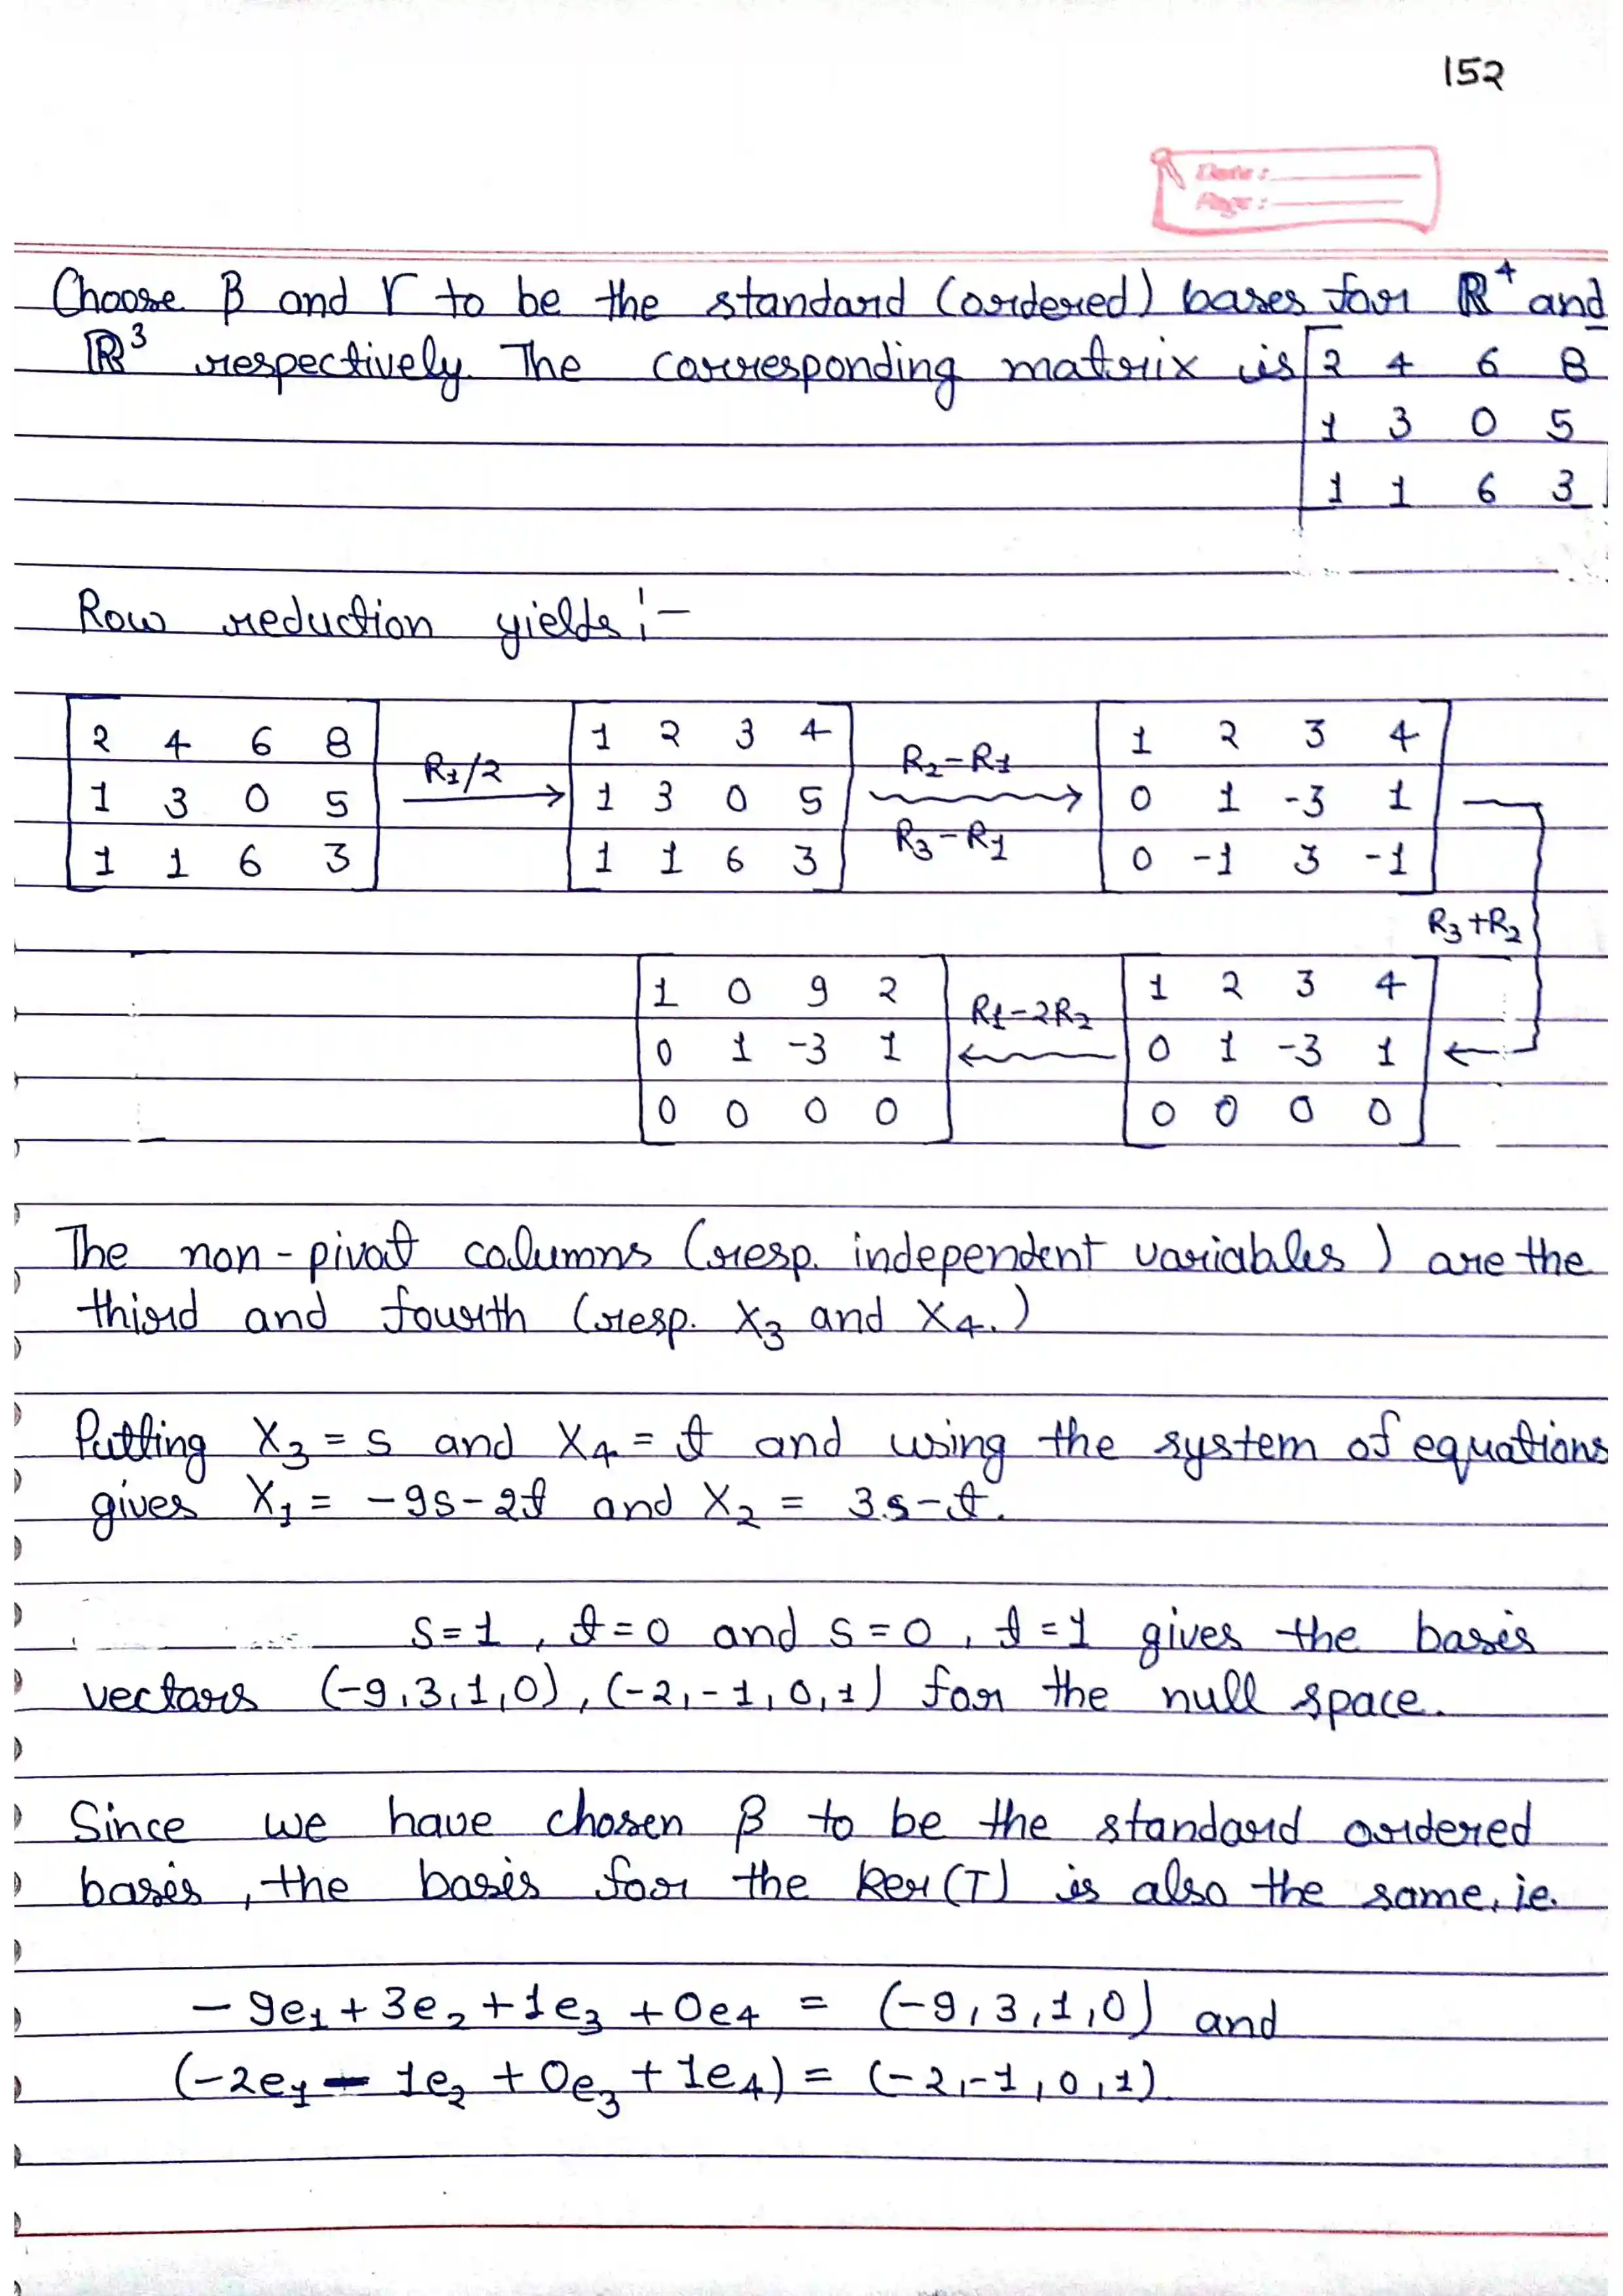 152
Date :
Page :
Choose β and γ to be the standard (ordered) bases for ℝ⁴ and
ℝ³ respectively. The corresponding matrix is [2 4 6 8
1 3 0 5
1 1 6 3]
Row reduction yields :-
[2 4 6 8; 1 3 0 5; 1 1 6 3] R₁/2 → [1 2 3 4; 1 3 0 5; 1 1 6 3] R₂-R₁ R₃-R₁ → [1 2 3 4; 0 1 -3 1; 0 -1 3 -1]
R₃+R₂
[1 0 9 2; 0 1 -3 1; 0 0 0 0] ← R₁-2R₂ [1 2 3 4; 0 1 -3 1; 0 0 0 0] ←
The non-pivot columns (resp. independent variables) are the
third and fourth (resp. X₃ and X₄.)
Putting X₃ = s and X₄ = t and using the system of equations
gives X₁ = -9s-2t and X₂ = 3s-t.
s=1, t=0 and s=0, t=1 gives the basis
vectors (-9,3,1,0), (-2,-1,0,1) for the null space.
Since we have chosen β to be the standard ordered
basis, the basis for the ker(T) is also the same, ie.
-9e₁+3e₂+1e₃+0e₄ = (-9,3,1,0) and
(-2e₁-1e₂+0e₃+1e₄) = (-2,-1,0,1)